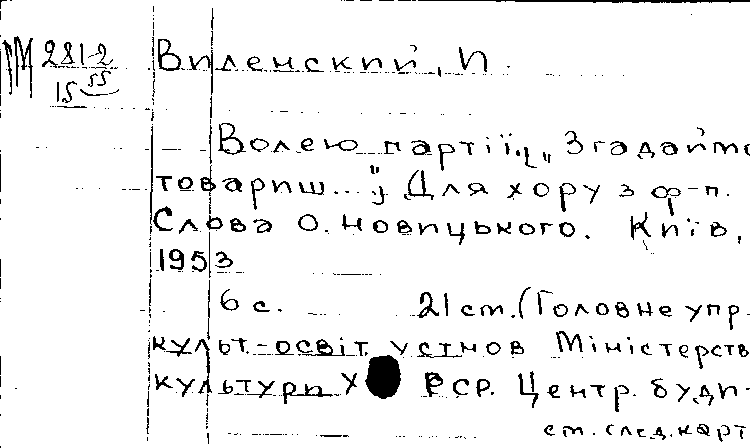 М 281-2
15 55
Виленский, И.
Волею партії. „Згадаймо
товариш...“ Для хору з ф-п.
Слова О. Новицького. Київ,
1953
6 с. 21 cm. (Головне упр.
культ.-освіт. устнов Міністерств
культури У РСР. Центр. буди-
ст. след. карт